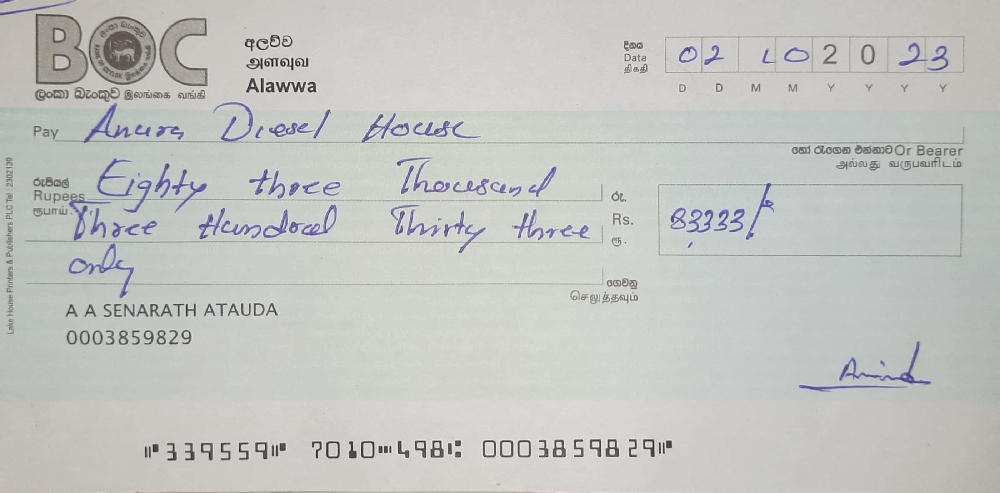 BOC
ලංකා බැංකුව இலங்கை வங்கி
අලව්ව
அளவுவ
Alawwa
දිනය
Data
திகதி
02 10 2023
D D M M Y Y Y Y
Pay Anura Diesel House
හෝ රැගෙන එන්නාට Or Bearer
அல்லது வருபவரிடம்
රුපියල්
Rupees
ரூபாய்
Eighty three Thousand
Three Hundred Thirty three
only
රු.
Rs.
ரூ.
83333/=
ගෙවනු
செலுத்தவும்
A A SENARATH ATAUDA
0003859829
Lake House Printers & Publishers PLC Tel : 2302139
⑈339559⑈ 7010⑉498⑆ 0003859829⑈